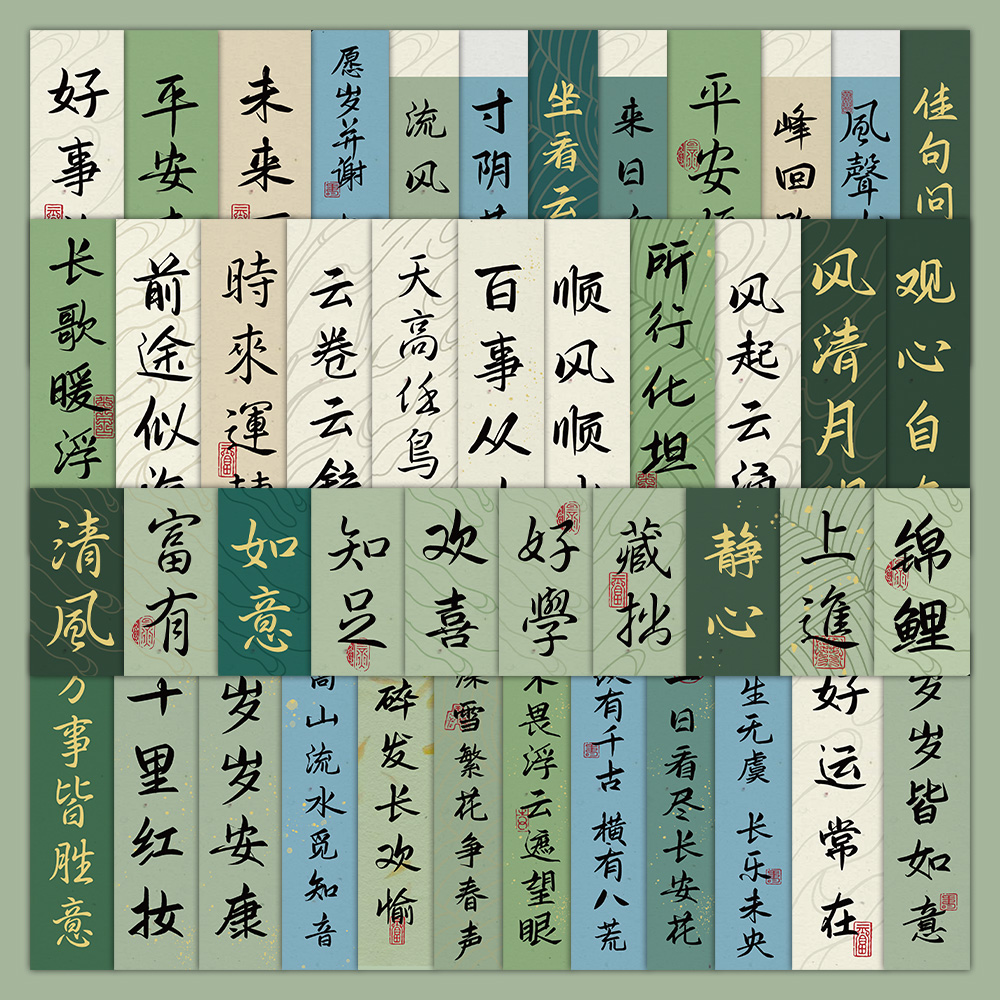 好事
平安
未来
愿岁并谢
流风
寸阴
坐看云
来日
平安
峰回
風聲
佳句问
长歌暖浮
前途似海
時來運
云卷云舒
天高任鸟
百事从
顺风顺
所行化坦
风起云涌
风清月
观心自
清風
富有
如意
知足
欢喜
好學
藏拙
静心
上進
锦鲤
万事皆胜意
十里红妆
岁岁安康
高山流水觅知音
碎发长欢愉
深雪繁花争春声
不畏浮云遮望眼
纵有千古 横有八荒
一日看尽长安花
生无虞 长乐未央
好运常在
岁岁皆如意